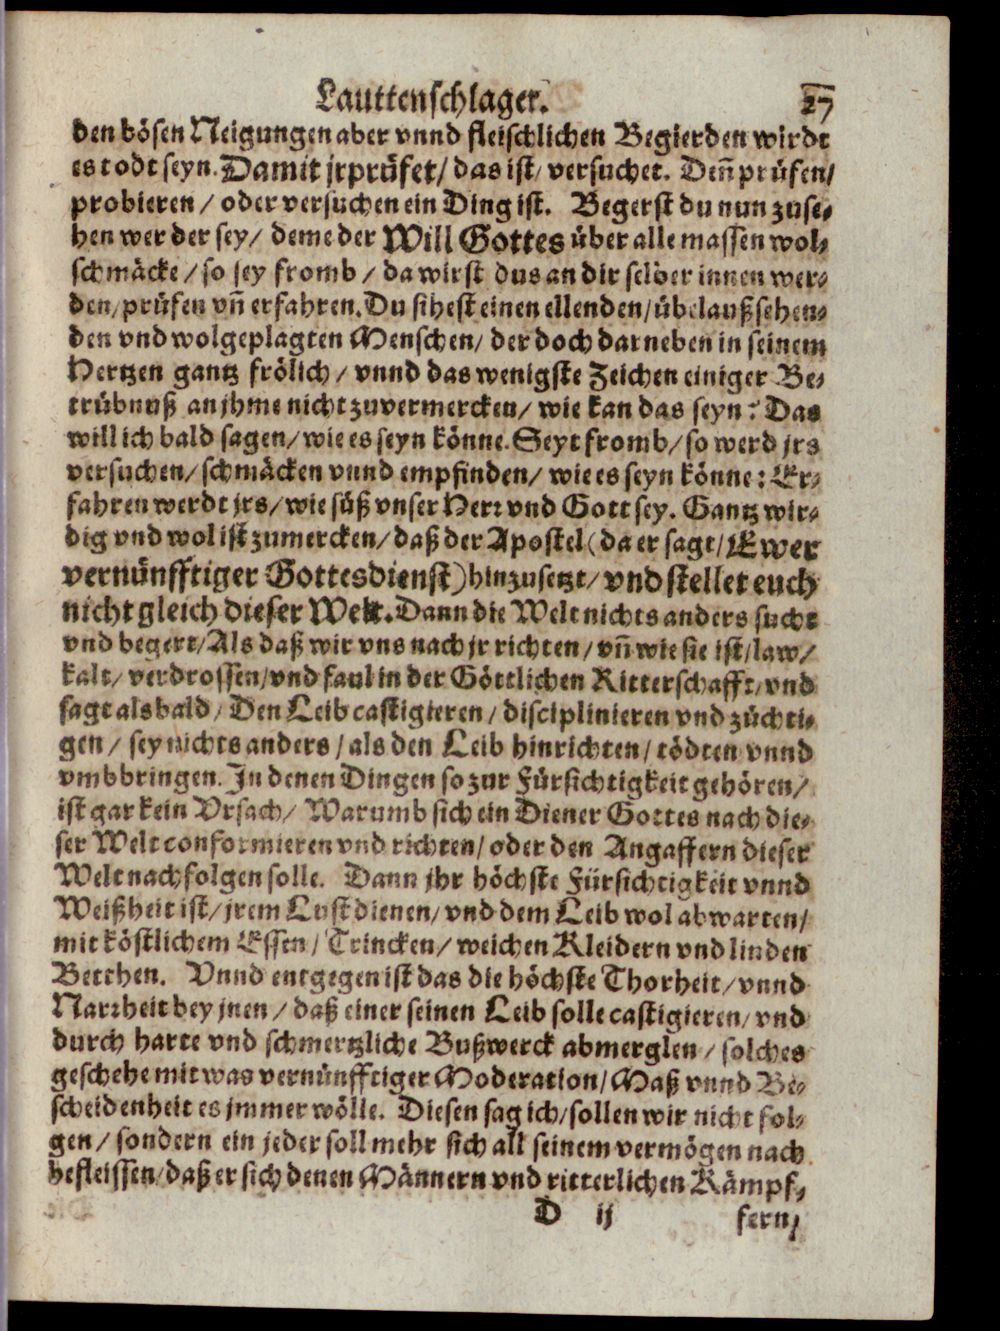 Lauttenschlager. 27
den bösen Neigungen aber vnnd fleischlichen Begierden wirdt
es todt seyn. Damit jr prüfet/ das ist/ versuchet. Deñ prüfen/
probieren / oder versuchen ein Ding ist. Begerst du nun zuse-
hen wer der sey/ deme der Will Gottes über alle massen wol-
schmäcke / so sey fromb / da wirst dus an dir selber innen wer-
den/ prüfen vñ erfahren. Du sihest einen ellenden/ übelaußsehen-
den vnd wolgeplagten Menschen/ der doch darneben in seinem
Hertzen gantz frölich / vnnd das wenigste Zeichen einiger Be-
trübnuß an jhme nicht zuvermercken/ wie kan das seyn? Das
will ich bald sagen/ wie es seyn könne. Seyt fromb/ so werd jrs
versuchen/ schmäcken vnnd empfinden/ wie es seyn könne: Er-
fahren werdt jrs/ wie süß vnser Herr vnd Gott sey. Gantz wir-
dig vnd wol ist zumercken/ daß der Apostel (da er sagt/ Ewer
vernünfftiger Gottesdienst) hinzusetzt/ vnd stellet euch
nicht gleich dieser Welt. Dann die Welt nichts anders sucht
vnd begert/ Als daß wir vns nach jr richten/ vñ wie sie ist/ law/
kalt/ verdrossen/ vnd faul in der Göttlichen Ritterschafft/ vnd
sagt alsbald/ Den Leib castigieren / disciplinieren vnd züchti-
gen / sey nichts anders / als den Leib hinrichten/ tödten vnnd
vmbbringen. In denen Dingen so zur Fürsichtigkeit gehören/
ist gar kein Vrsach/ Warumb sich ein Diener Gottes nach die-
ser Welt conformieren vnd richten/ oder den Angaffern dieser
Welt nachfolgen solle. Dann jhr höchste Fürsichtigkeit vnnd
Weißheit ist/ jrem Lust dienen/ vnd dem Leib wol abwarten/
mit köstlichem Essen / Trincken/ weichen Kleidern vnd linden
Betthen. Vnnd entgegen ist das die höchste Thorheit/ vnnd
Narrheit bey jnen / daß einer seinen Leib solle castigieren/ vnd
durch harte vnd schmertzliche Bußwerck abmerglen / solches
geschehe mit was vernünfftiger Moderation/ Maß vnnd Be-
scheidenheit es jmmer wölle. Diesen sag ich/ sollen wir nicht fol-
gen / sondern ein jeder soll mehr sich all seinem vermögen nach
befleissen/ daß er sich denen Männern vnd ritterlichen Kämpf-
D ij fern/